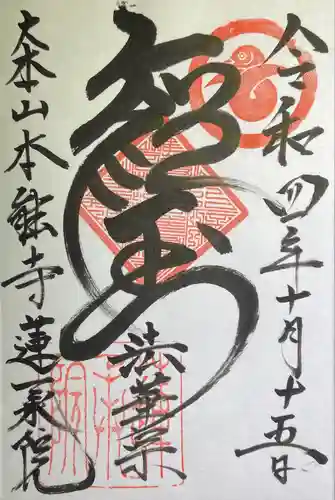 令和四年十月十五日
法華宗
大本山本能寺蓮承院